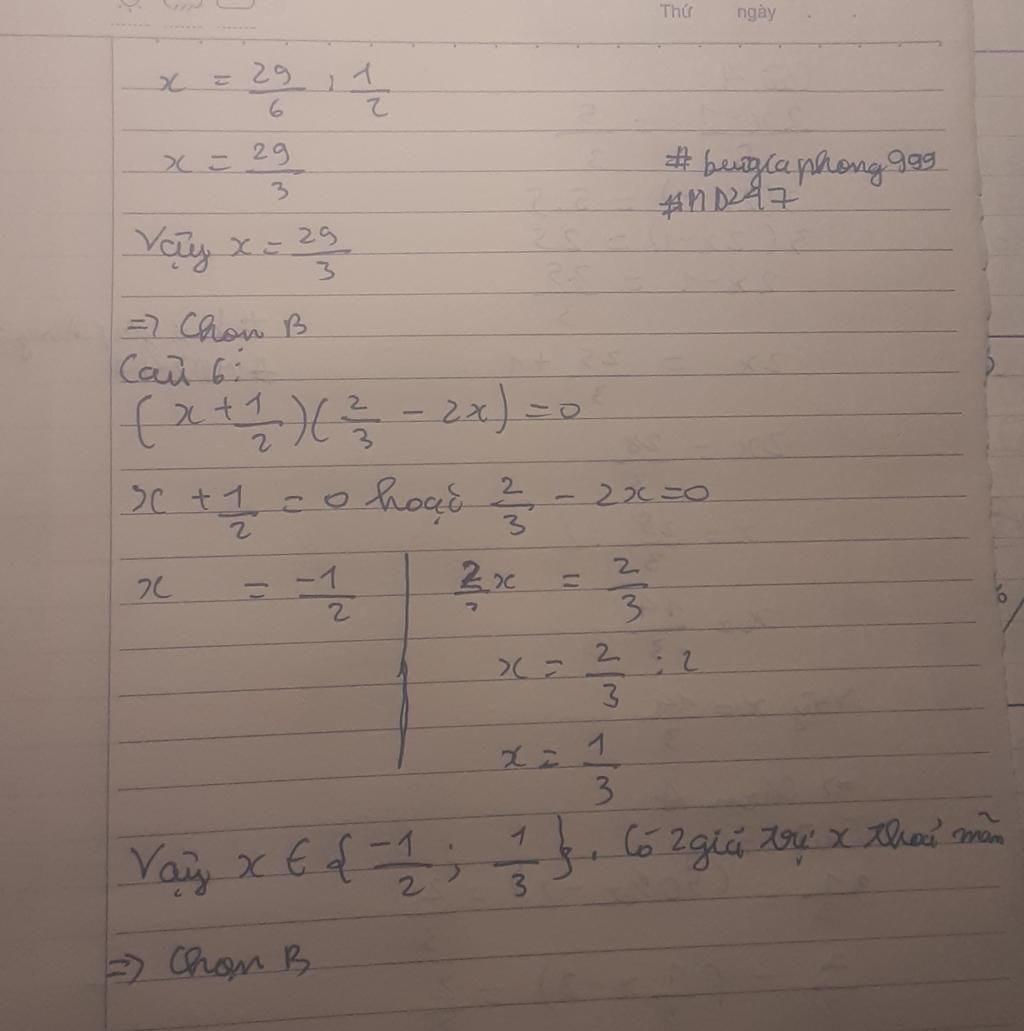 Thứ ngày . .
x = 29/6 : 1/2
x = 29/3
#buigiaphong999
#MD247
Vậy x = 29/3
=> Chọn B
Câu 6:
(x + 1/2)(2/3 - 2x) = 0
x + 1/2 = 0 hoặc 2/3 - 2x = 0
x = -1/2
2x = 2/3
x = 2/3 : 2
x = 1/3
Vậy x ∈ {-1/2; 1/3}. Có 2 giá trị x thoả mãn
=> Chọn B